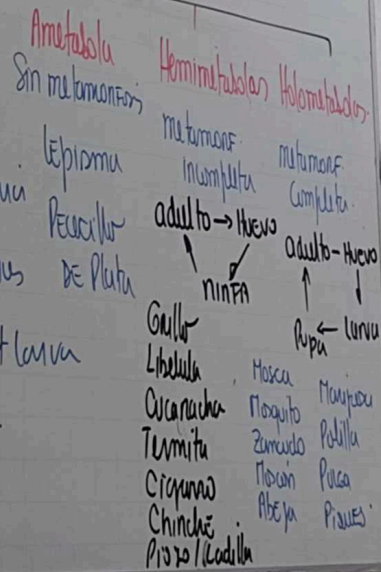 Ametabola
Sin metamorfosis
Lepisma
Pececillo
DE Plata
larva
Hemimetabolas
metamorf.
Incompleta
adulto → HUEVO
NINFA
Grillo
Libelula
Cucaracha
Termita
Cigarra
Chinche
Piojo/Ladilla
Holometabolas
metamorf.
Completa.
adulto - HUEVO
Pupa ← larva
Mosca
Mosquito
Zancudo
Moscon
Abeja
Mariposa
Polilla
Pulga
Piques